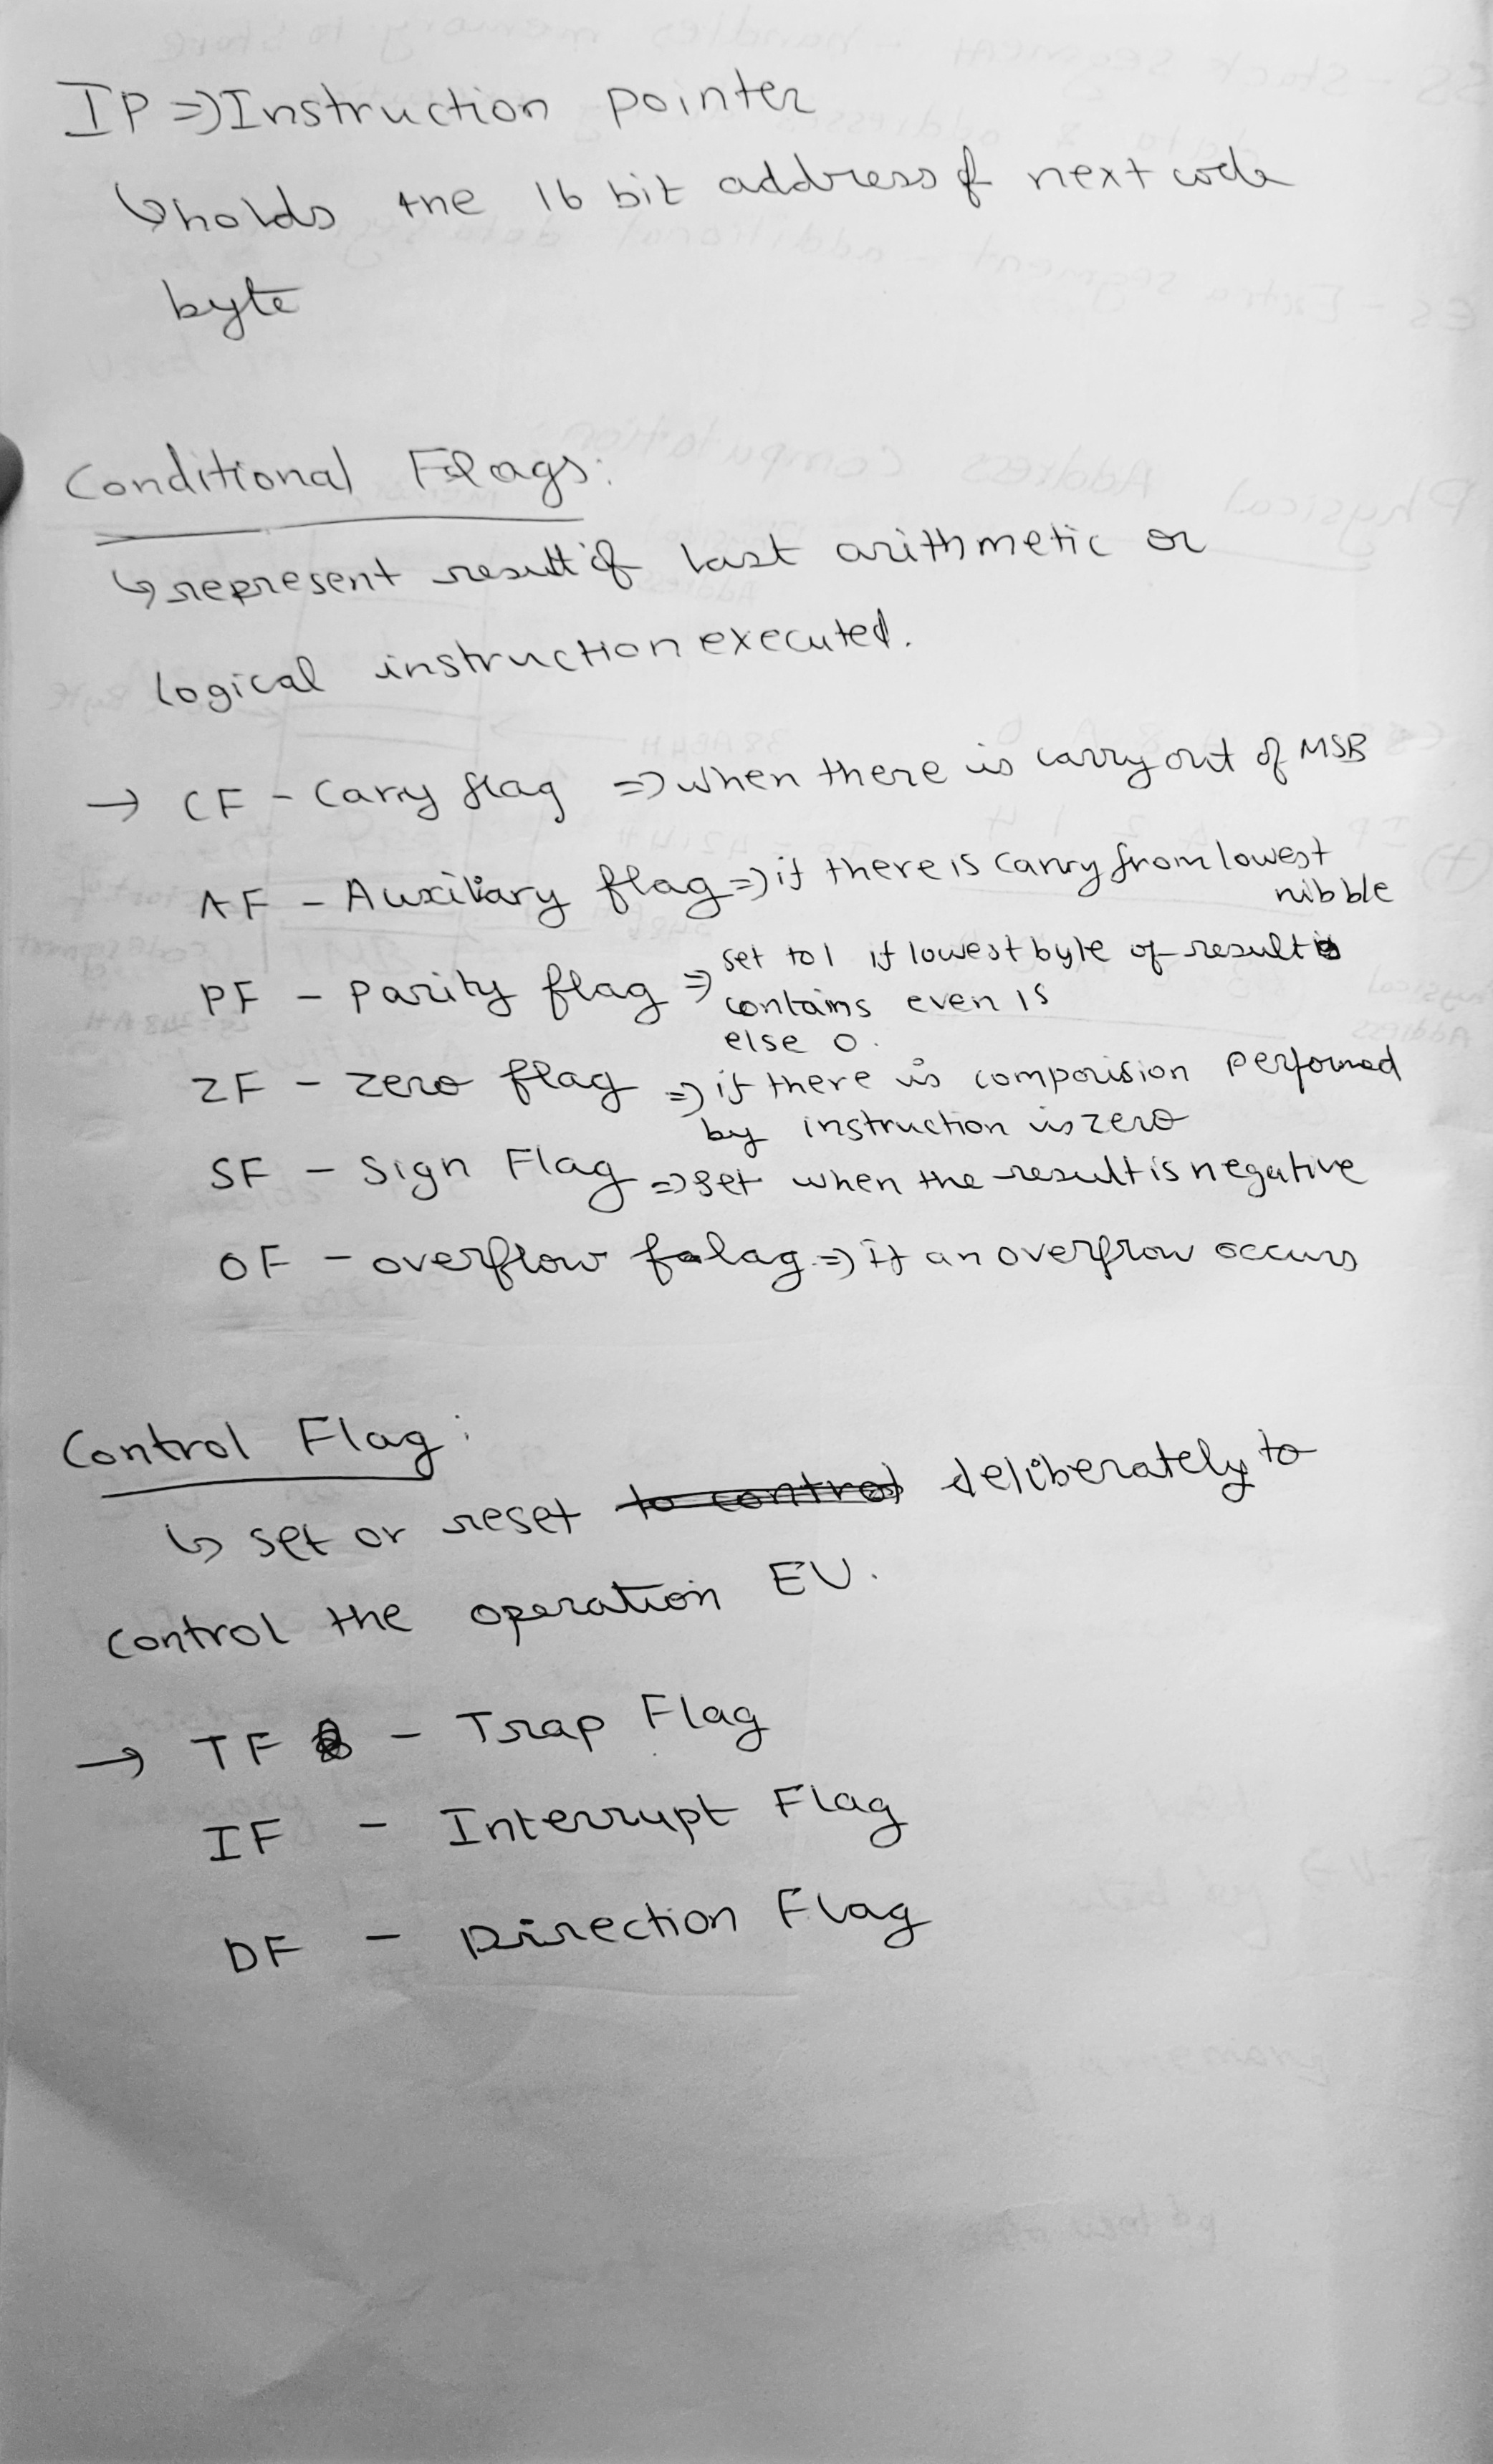 IP => Instruction pointer
↳ holds the 16 bit address of next code
byte
Conditional Flags:
↳ represent result of last arithmetic or
logical instruction executed.
→ CF - Carry flag => when there is carry out of MSB
AF - Auxiliary flag => if there is carry from lowest
nibble
PF - parity flag => set to 1 if lowest byte of result
contains even 1s
else 0.
ZF - zero flag => if there is comporision performed
by instruction is zero
SF - Sign Flag => set when the result is negative
OF - overflow falag => if an overflow occurs
Control Flag:
↳ set or reset to control deliberately to
control the operation EU.
→ TF - Trap Flag
IF - Interrupt Flag
DF - Direction Flag